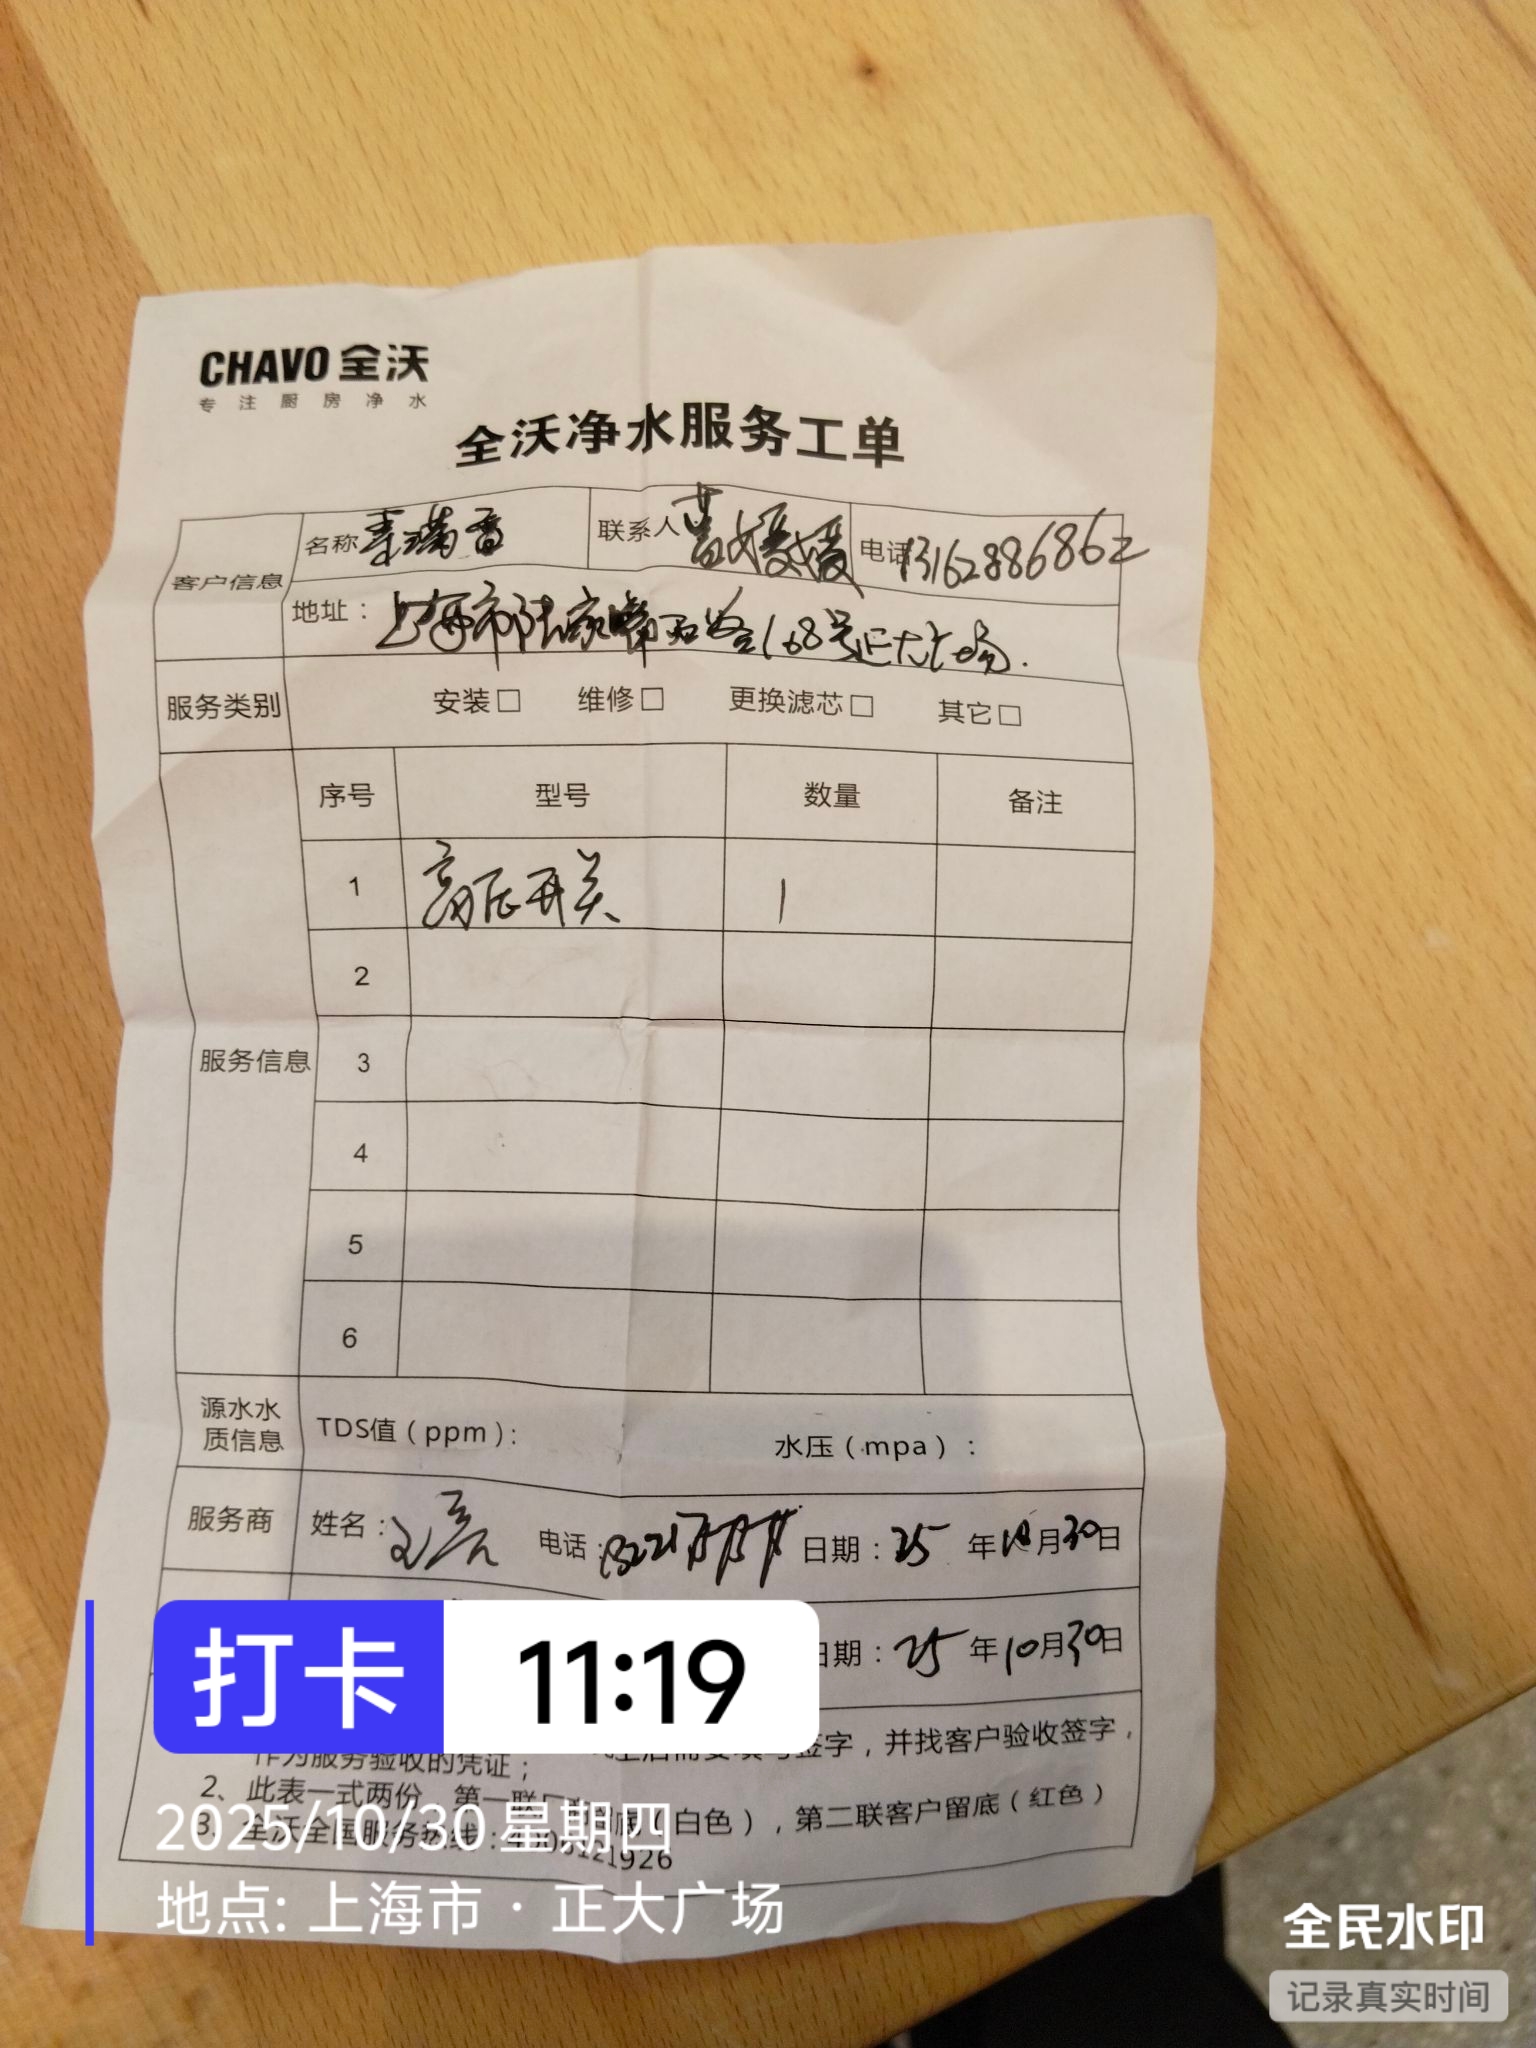 CHAVO 全沃
专注厨房净水
全沃净水服务工单
客户信息
名称 秦满香 联系人 黄媛媛 电话 13162886862
地址： 上海市陆家嘴西路168号正大广场.
服务类别 安装□ 维修□ 更换滤芯□ 其它□
服务信息
序号 型号 数量 备注
1 高压开关 1
2
3
4
5
6
源水水质信息 TDS值（ppm）： 水压（mpa）：
服务商 姓名： 王亮 电话： 日期：25年10月30日
日期：25年10月30日
签字，并找客户验收签字，
作为服务验收的凭证；
2、此表一式两份，第一联 留底（白色），第二联客户留底（红色）
3、全沃全国服务热线：4006121926
打卡 11:19
2025/10/30 星期四
地点: 上海市·正大广场
全民水印
记录真实时间